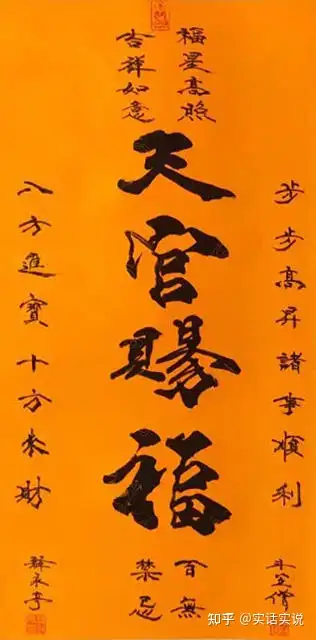 福星高照
吉祥如意
天官賜福
步步高昇諸事順利
八方進寶十方来財
百無
禁忌
知乎 @实话实说